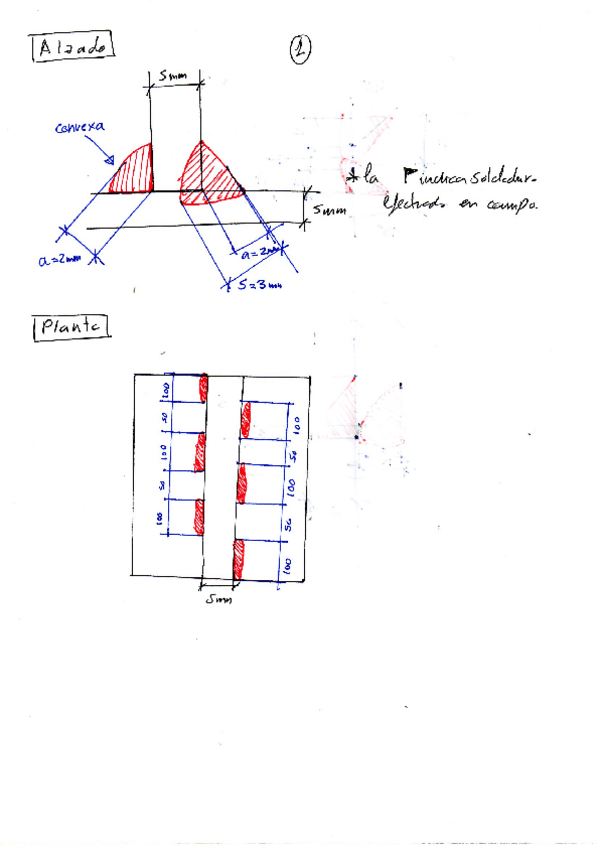 Alzado
1
5mm
convexa
* la indica soldadura
efectuada en campo.
5mm
a=2mm
a=2mm
S=3mm
Planta
100
50
100
50
100
100
50
100
50
100
5mm